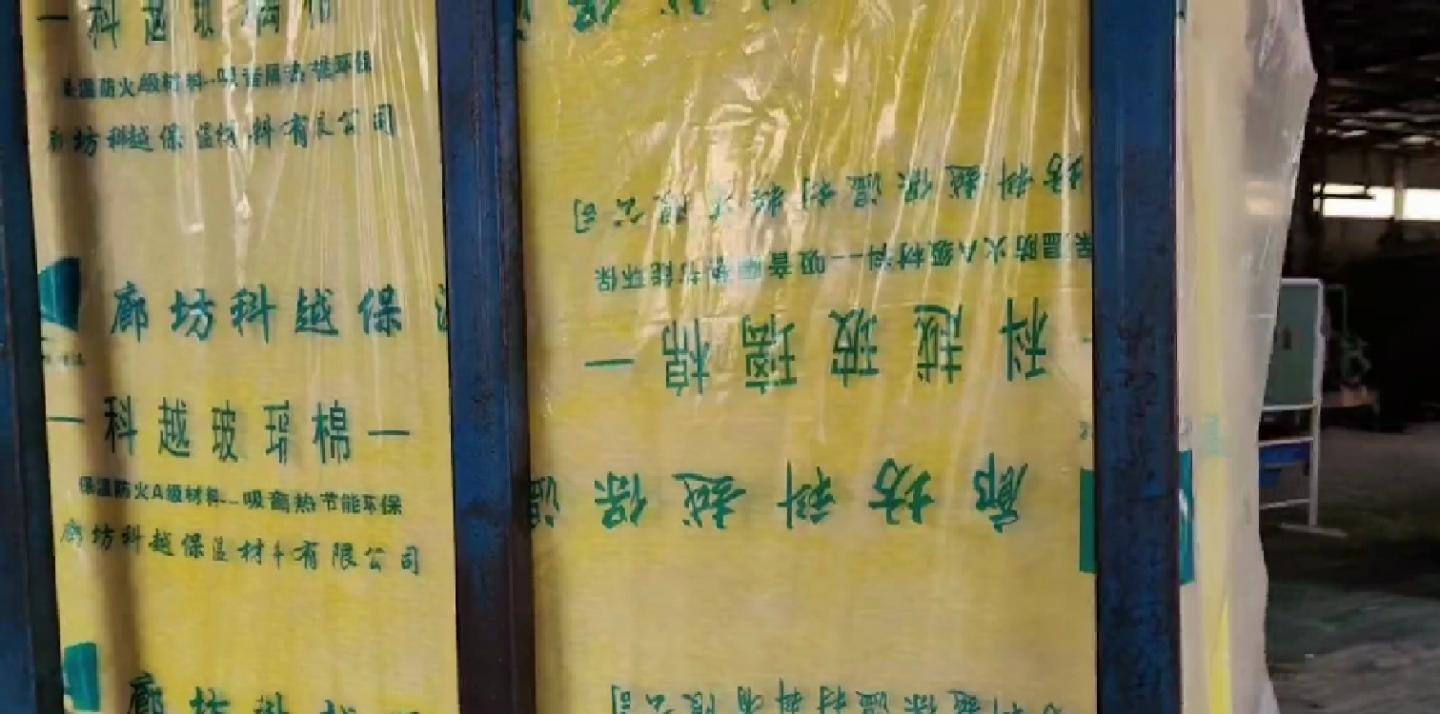 科越玻璃棉
保温防火A级材料--吸音隔热节能环保
廊坊科越保温材料有限公司
廊坊科越保温
一科越玻璃棉一
保温防火A级材料--吸音隔热节能环保
廊坊科越保温材料有限公司
廊坊科越
保温
坊科越保温材料有限公司
保温防火A级材料--吸音隔热节能环保
科越玻璃棉一
廊坊科越保温
科越保温材料有限公司